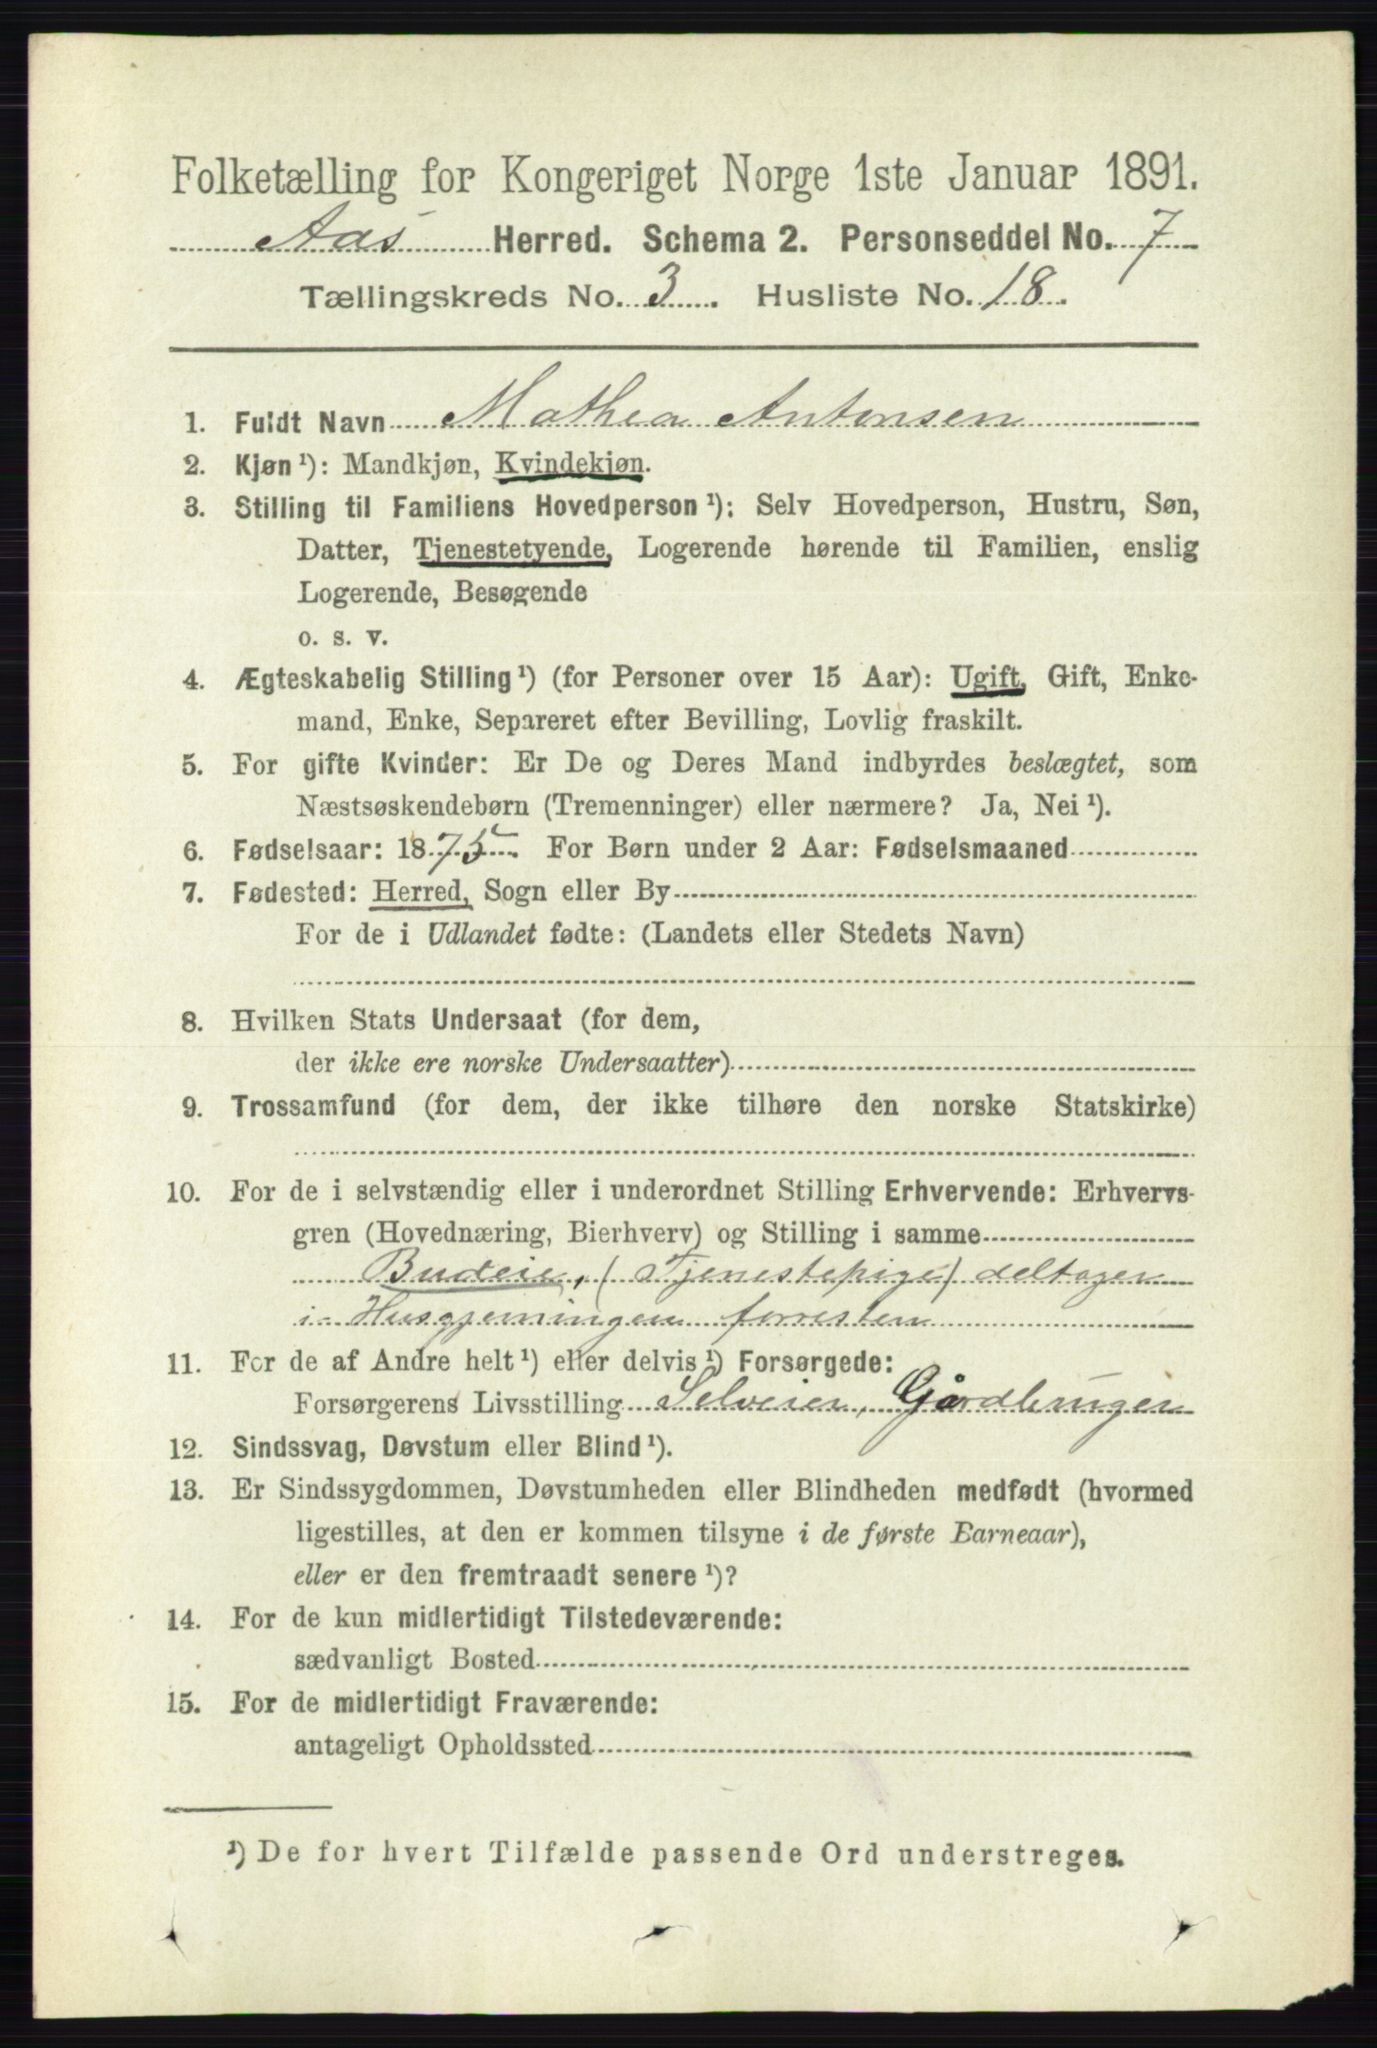 Folketælling for Kongeriget Norge 1ste Januar 1891.
Aas Herred. Schema 2. Personseddel No. 7
Tællingskreds No. 3. Husliste No. 18.
1. Fuldt Navn Mathea Antonsen
2. Kjøn ¹): Mandkjøn, Kvindekjøn.
3. Stilling til Familiens Hovedperson ¹): Selv Hovedperson, Hustru, Søn,
Datter, Tjenestetyende, Logerende hørende til Familien, enslig
Logerende, Besøgende
o. s. v.
4. Ægteskabelig Stilling ¹) (for Personer over 15 Aar): Ugift, Gift, Enke-
mand, Enke, Separeret efter Bevilling, Lovlig fraskilt.
5. For gifte Kvinder: Er De og Deres Mand indbyrdes beslægtet, som
Næstsøskendebørn (Tremenninger) eller nærmere? Ja, Nei ¹).
6. Fødselsaar: 1875. For Børn under 2 Aar: Fødselsmaaned
7. Fødested: Herred, Sogn eller By
For de i Udlandet fødte: (Landets eller Stedets Navn)
8. Hvilken Stats Undersaat (for dem,
der ikke ere norske Undersaatter)
9. Trossamfund (for dem, der ikke tilhøre den norske Statskirke)
10. For de i selvstændig eller i underordnet Stilling Erhvervende: Erhvervs-
gren (Hovednæring, Bierhverv) og Stilling i samme
Budeie, (Tjenestepige) deltager
i Husgjerningen forresten
11. For de af Andre helt ¹) eller delvis ¹) Forsørgede:
Forsørgerens Livsstilling Selveier, Gårdbruger
12. Sindssvag, Døvstum eller Blind ¹).
13. Er Sindssygdommen, Døvstumheden eller Blindheden medfødt (hvormed
ligestilles, at den er kommen tilsyne i de første Barneaar),
eller er den fremtraadt senere ¹)?
14. For de kun midlertidigt Tilstedeværende:
sædvanligt Bosted
15. For de midlertidigt Fraværende:
antageligt Opholdssted
¹) De for hvert Tilfælde passende Ord understreges.